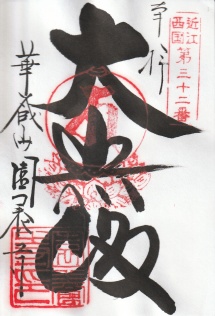 近江
西国
第三十二番
奉拝
大悲殿
華蔵山 園養寺